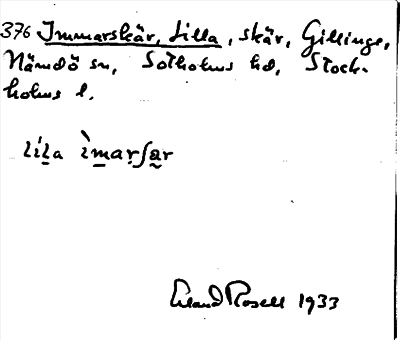 376 Immarskär, Lilla, skär, Gillinge,
Nämdö sn, Sotholms hd, Stock-
holms l.
lila ìmarʃar
Erland Rosell 1933